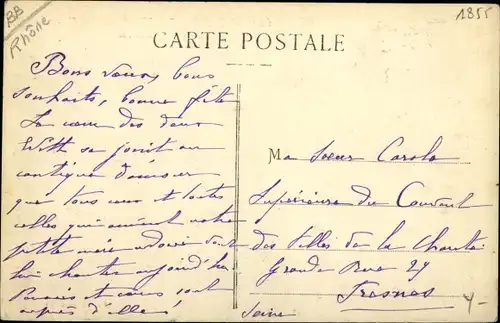 BB
Rhône
1855
CARTE POSTALE
Bons vœux, bons
souhaits, bonne fête
Le cœur des deux
se joint au
cantique d'amour
que tous ceux et toutes
celles qui aiment votre
petite mère adorée vont
lui chanter aujourd'hui
et cœurs sont
auprès d'elle!
Ma Soeur Carole
Supérieure du Couvent
des filles de la Charité
Grande Rue 27
Fresnes
Seine
4-